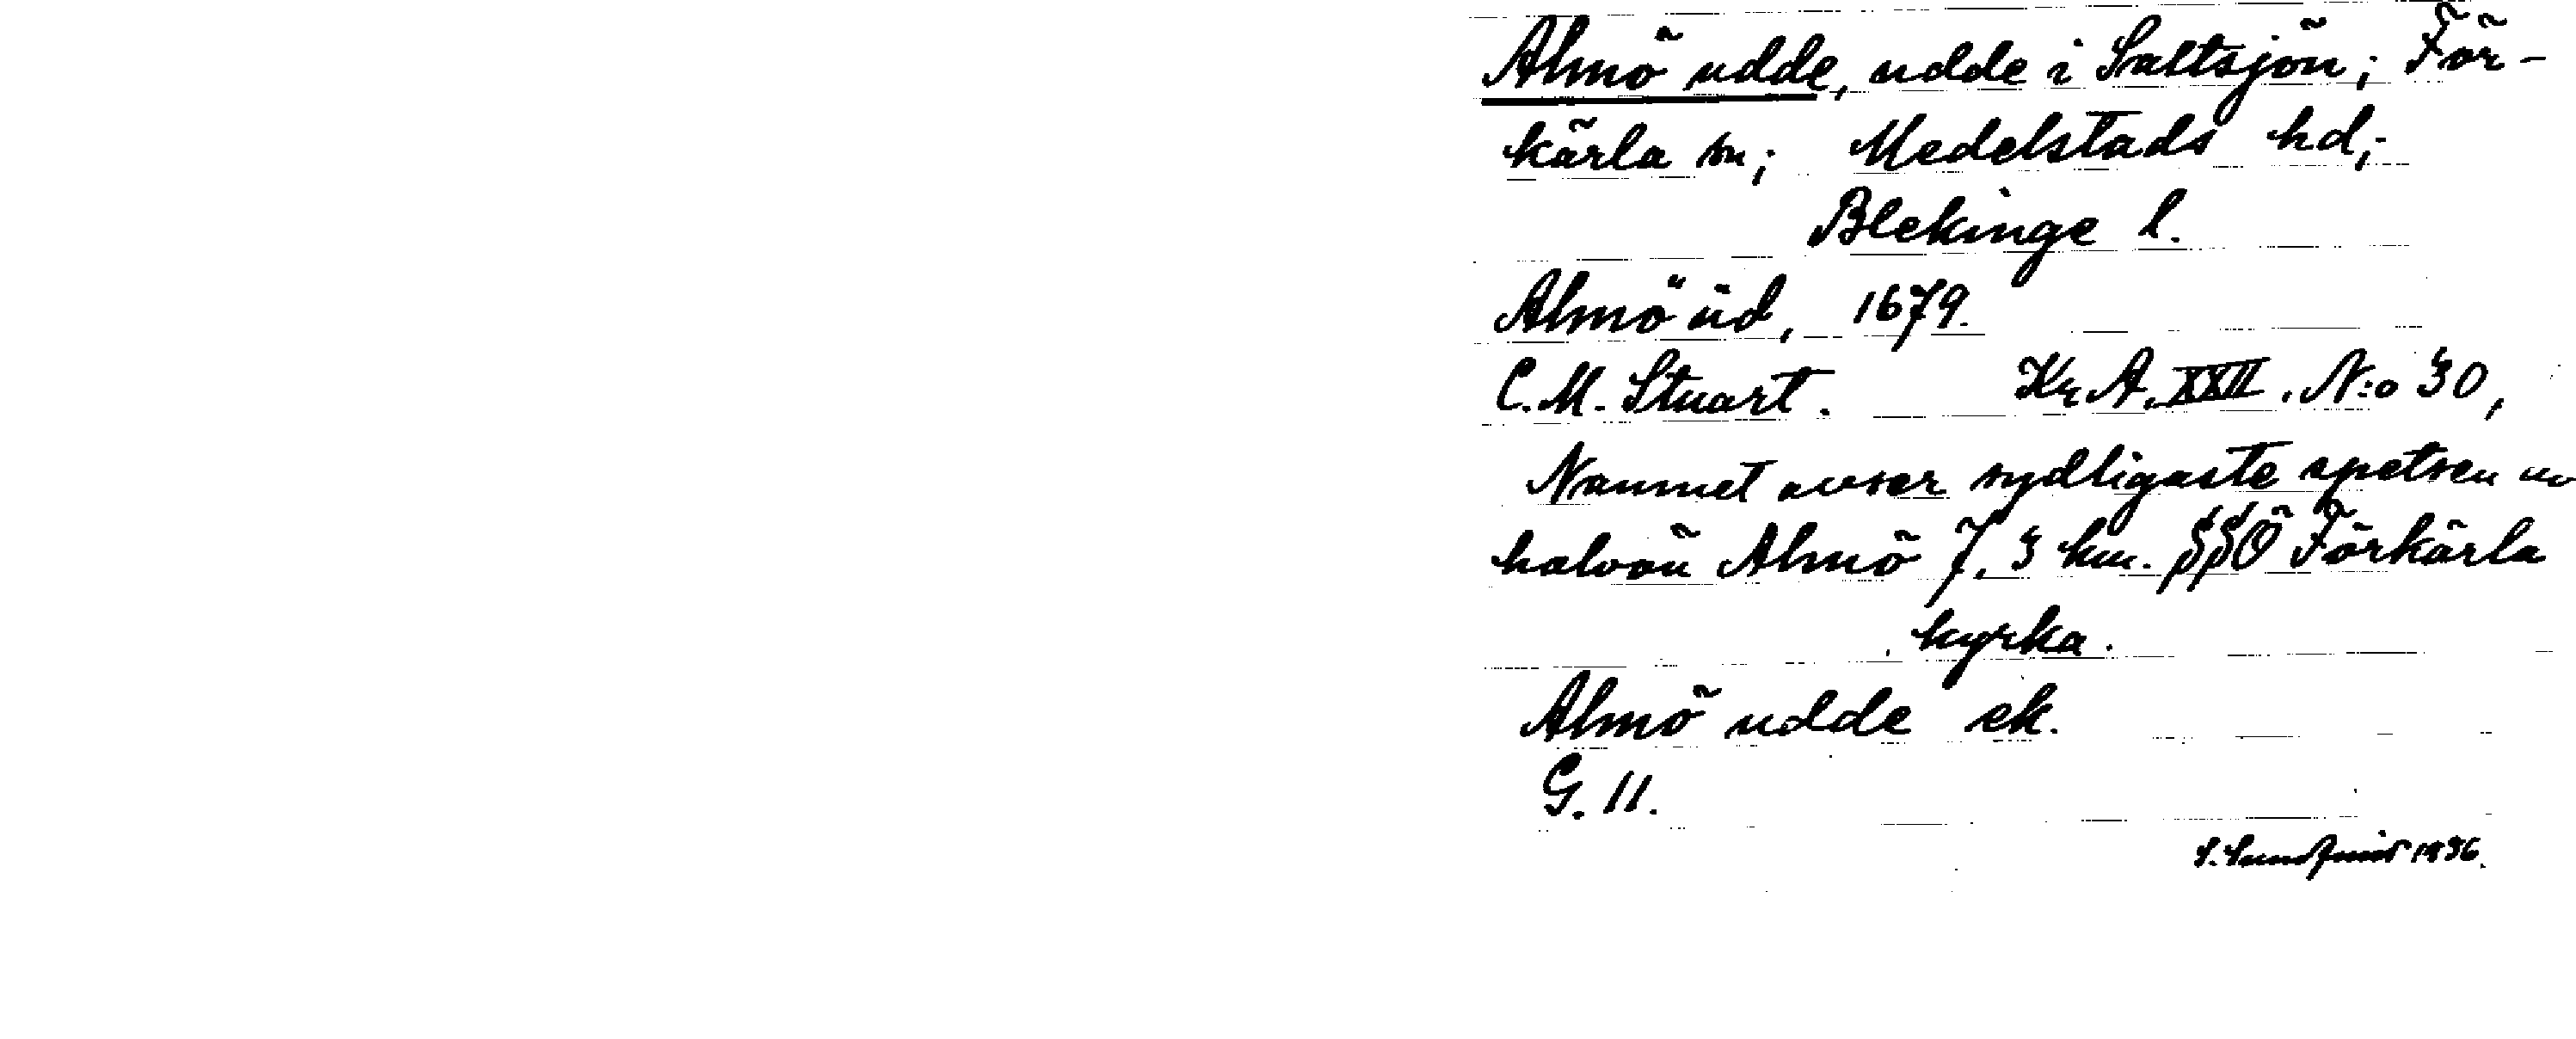 Almö udde, udde i Saltsjön; För-
kärla sn; Medelstads hd;
Blekinge l.
Almö üd, 1679.
C. M. Stuart. Kr. A. XXII. N:o 30,
Namnet avser sydligaste spetsen av
halvön Almö 7,3 km. SSÖ Förkärla
kyrka.
Almö udde ek.
G. 11.
1936.